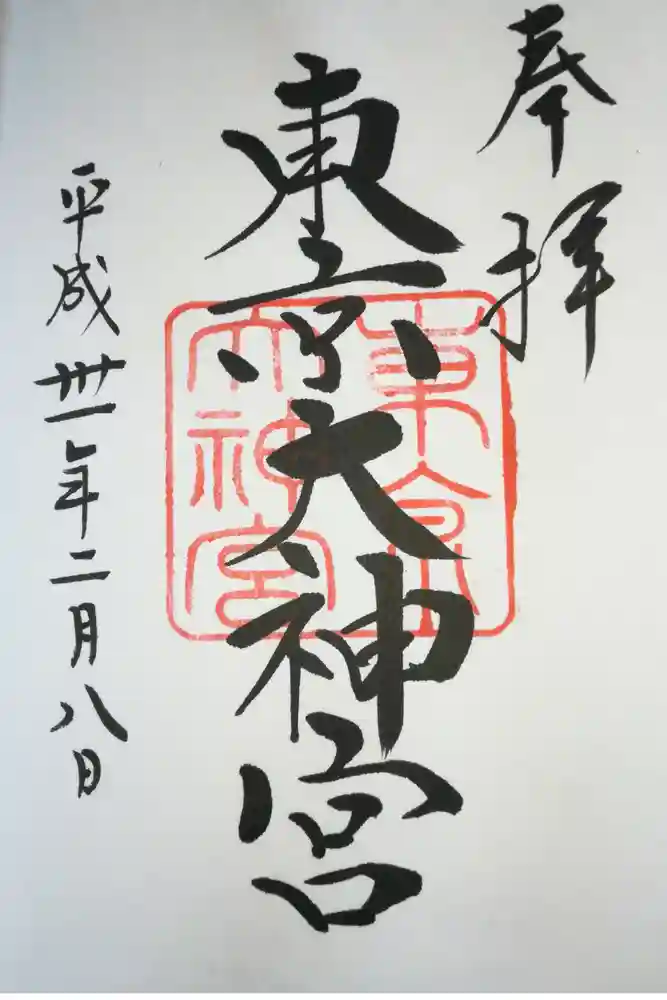 奉拝
東京大神宮
東京
大神宮
平成丗一年二月八日